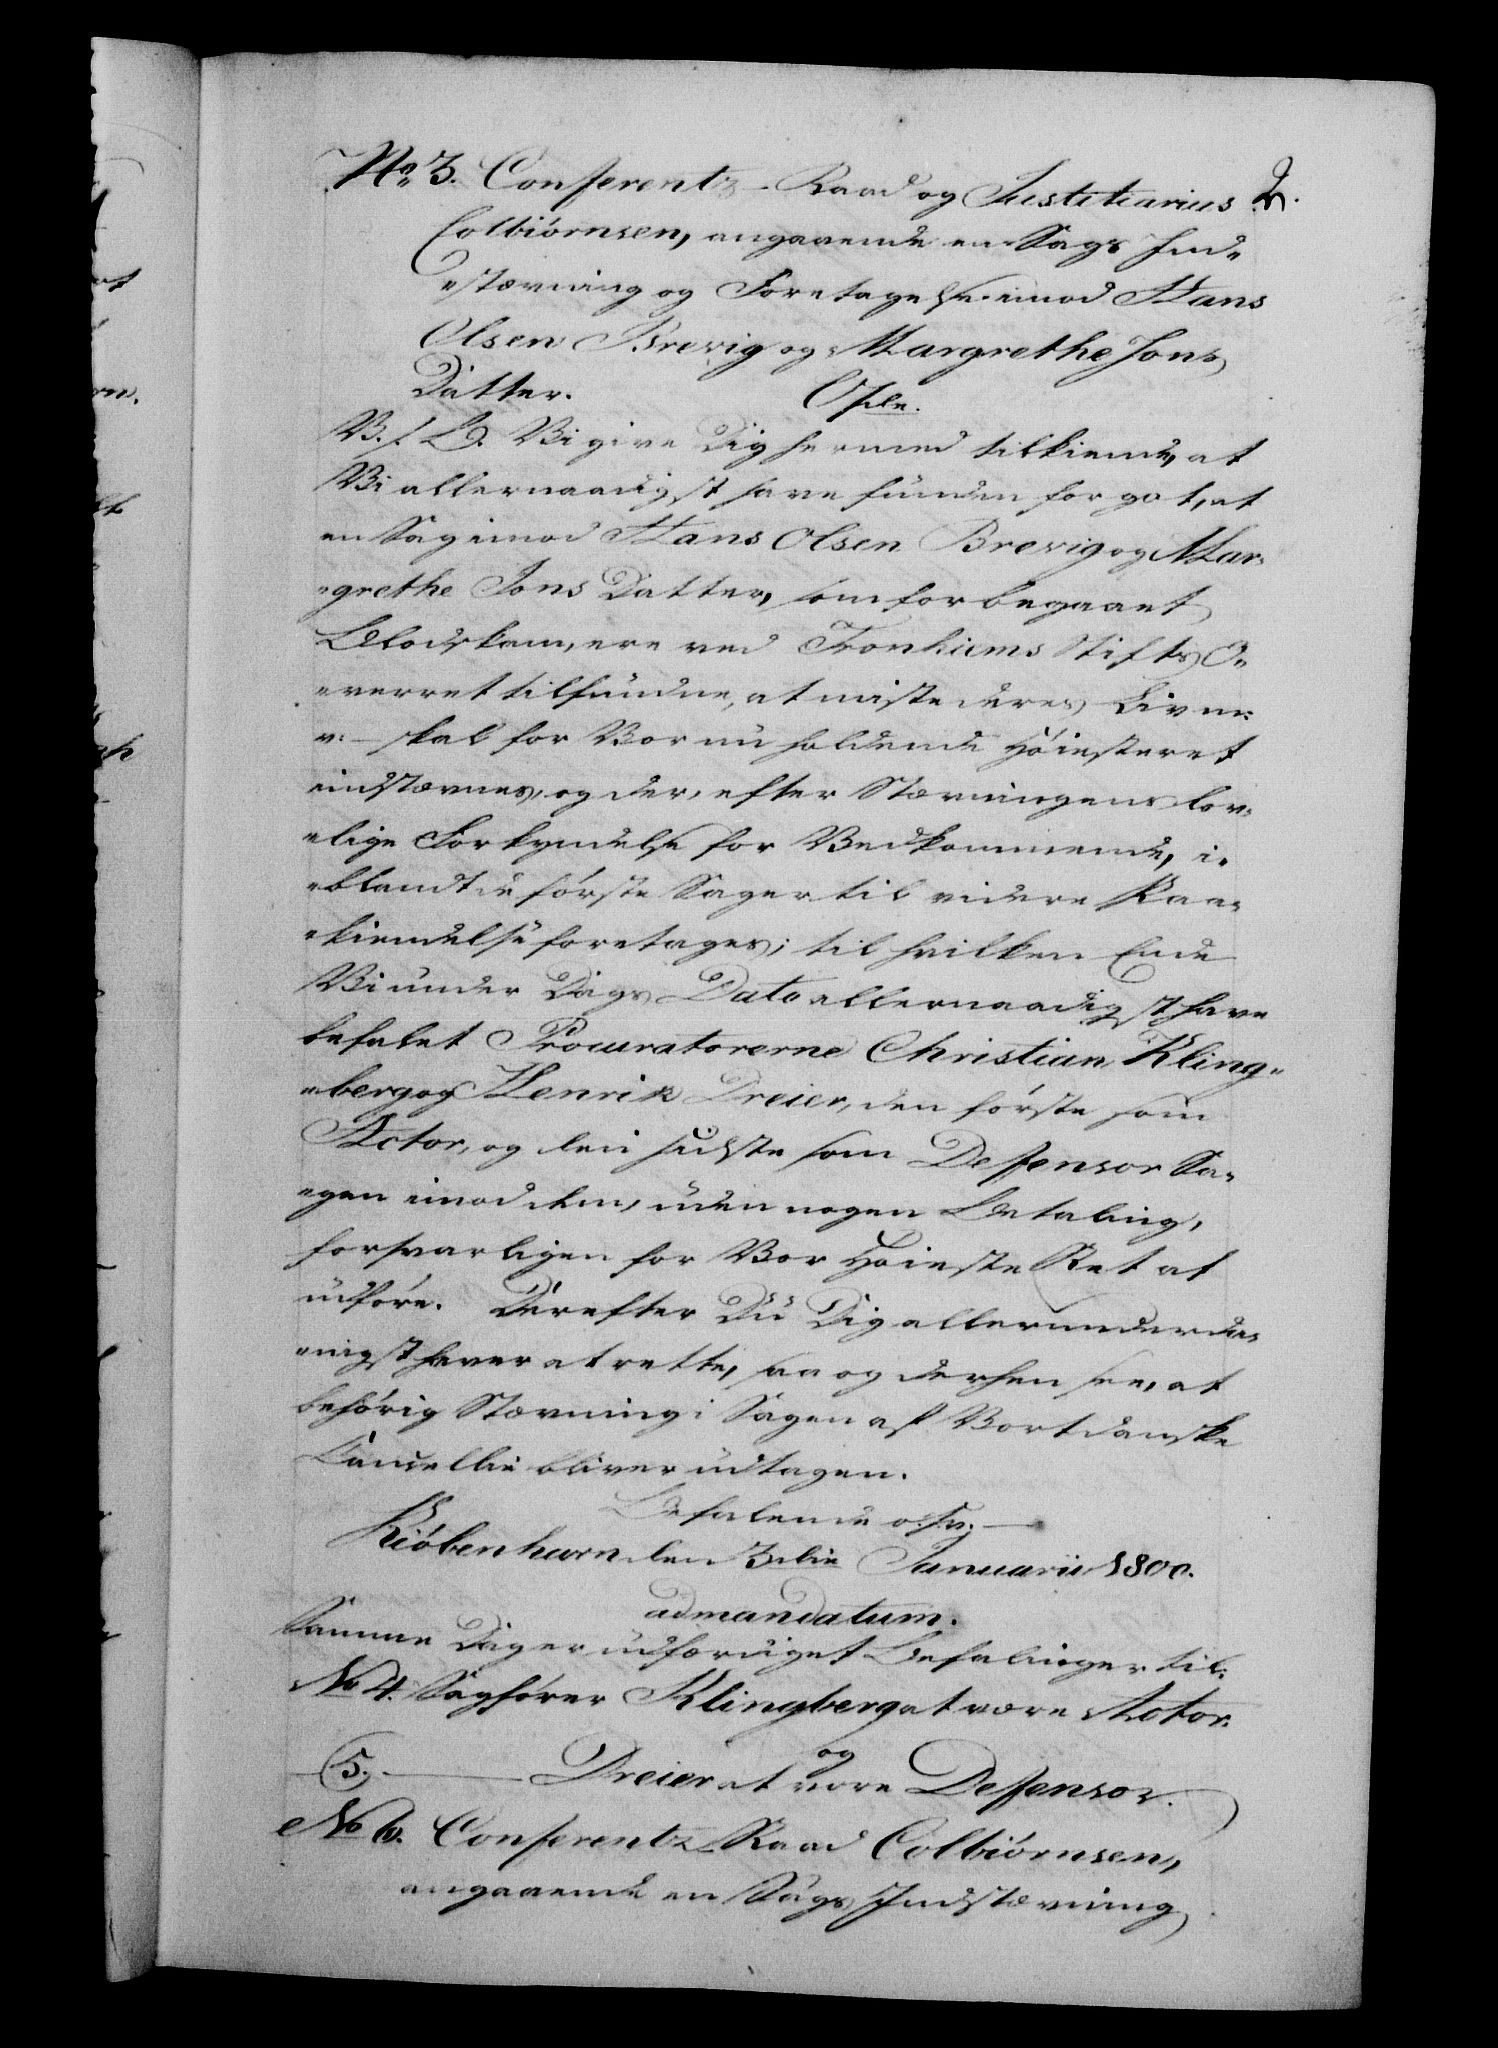 No 3. Conferentz-Raad og Justitiarius 2.
Colbiörnsen, angaaende en Sags Ind-
-stævning og Foretagelse imod Hans
Olsen Brevig og Margrethe Jons
Datter.
V. s. G. Vi give Dig hermed tilkiende, at
Vi allernaadigst have funden for got, at
en Sag imod Hans Olsen Brevig og Mar-
-grethe Jons Datter, som for begaaet
Blodskam, ere ved Tronhiems Stifts O-
-verret tilfundne, at miste deres Liv m:
v: - skal for Vor nu holdende Höiesteret
indstævnes, og der, efter Stævningens lov-
-lige Forkyndelse for Vedkommende, i-
-blandt de förste Sager til videre Paa-
-kiendelse foretages; til hvilken Ende
Vi under Dags Dato allernaadigst have
befalet Procuratorerne Christian Kling-
-berg og Henrik Dreier, den förste som
Actor, og den sidste som Defensor Sa-
-gen imod dem, uden nogen Betaling,
forsvarligen for Vor Höieste Ret at
udföre. Derefter Du Dig allerunderda-
-nigst haver at rette, saa og derhen see, at
behörig Stævning i Sagen af Vort danske
Cancellie bliver udtagen.
Befalende o. s. v. -
Kiöbenhavn den 3die Januarii 1800.
ad mandatum.
Samme Dag er udfærdiget Befalinger til:
No 4. Sagförer Klingberg at være Actor.
og
- 5. - Dreier at være Defensor.
No 6. Conferentz-Raad Colbiörnsen,
angaaende en Sags Indstævning